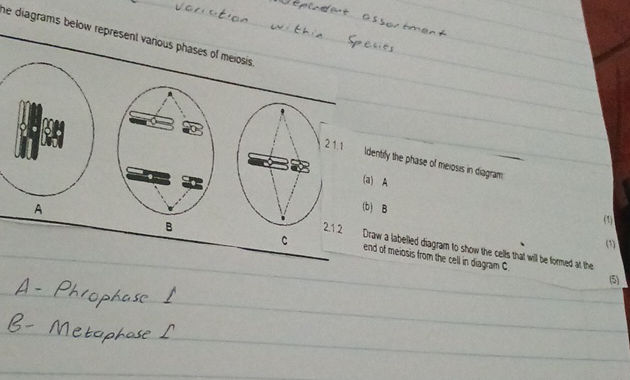 independent assortment
variation within Species
he diagrams below represent various phases of meiosis.
A
B
C
2.1.1 Identify the phase of meiosis in diagram:
(a) A (1)
(b) B (1)
2.1.2 Draw a labelled diagram to show the cells that will be formed at the
end of meiosis from the cell in diagram C. (5)
A - Phrophase I
B - Metaphase I